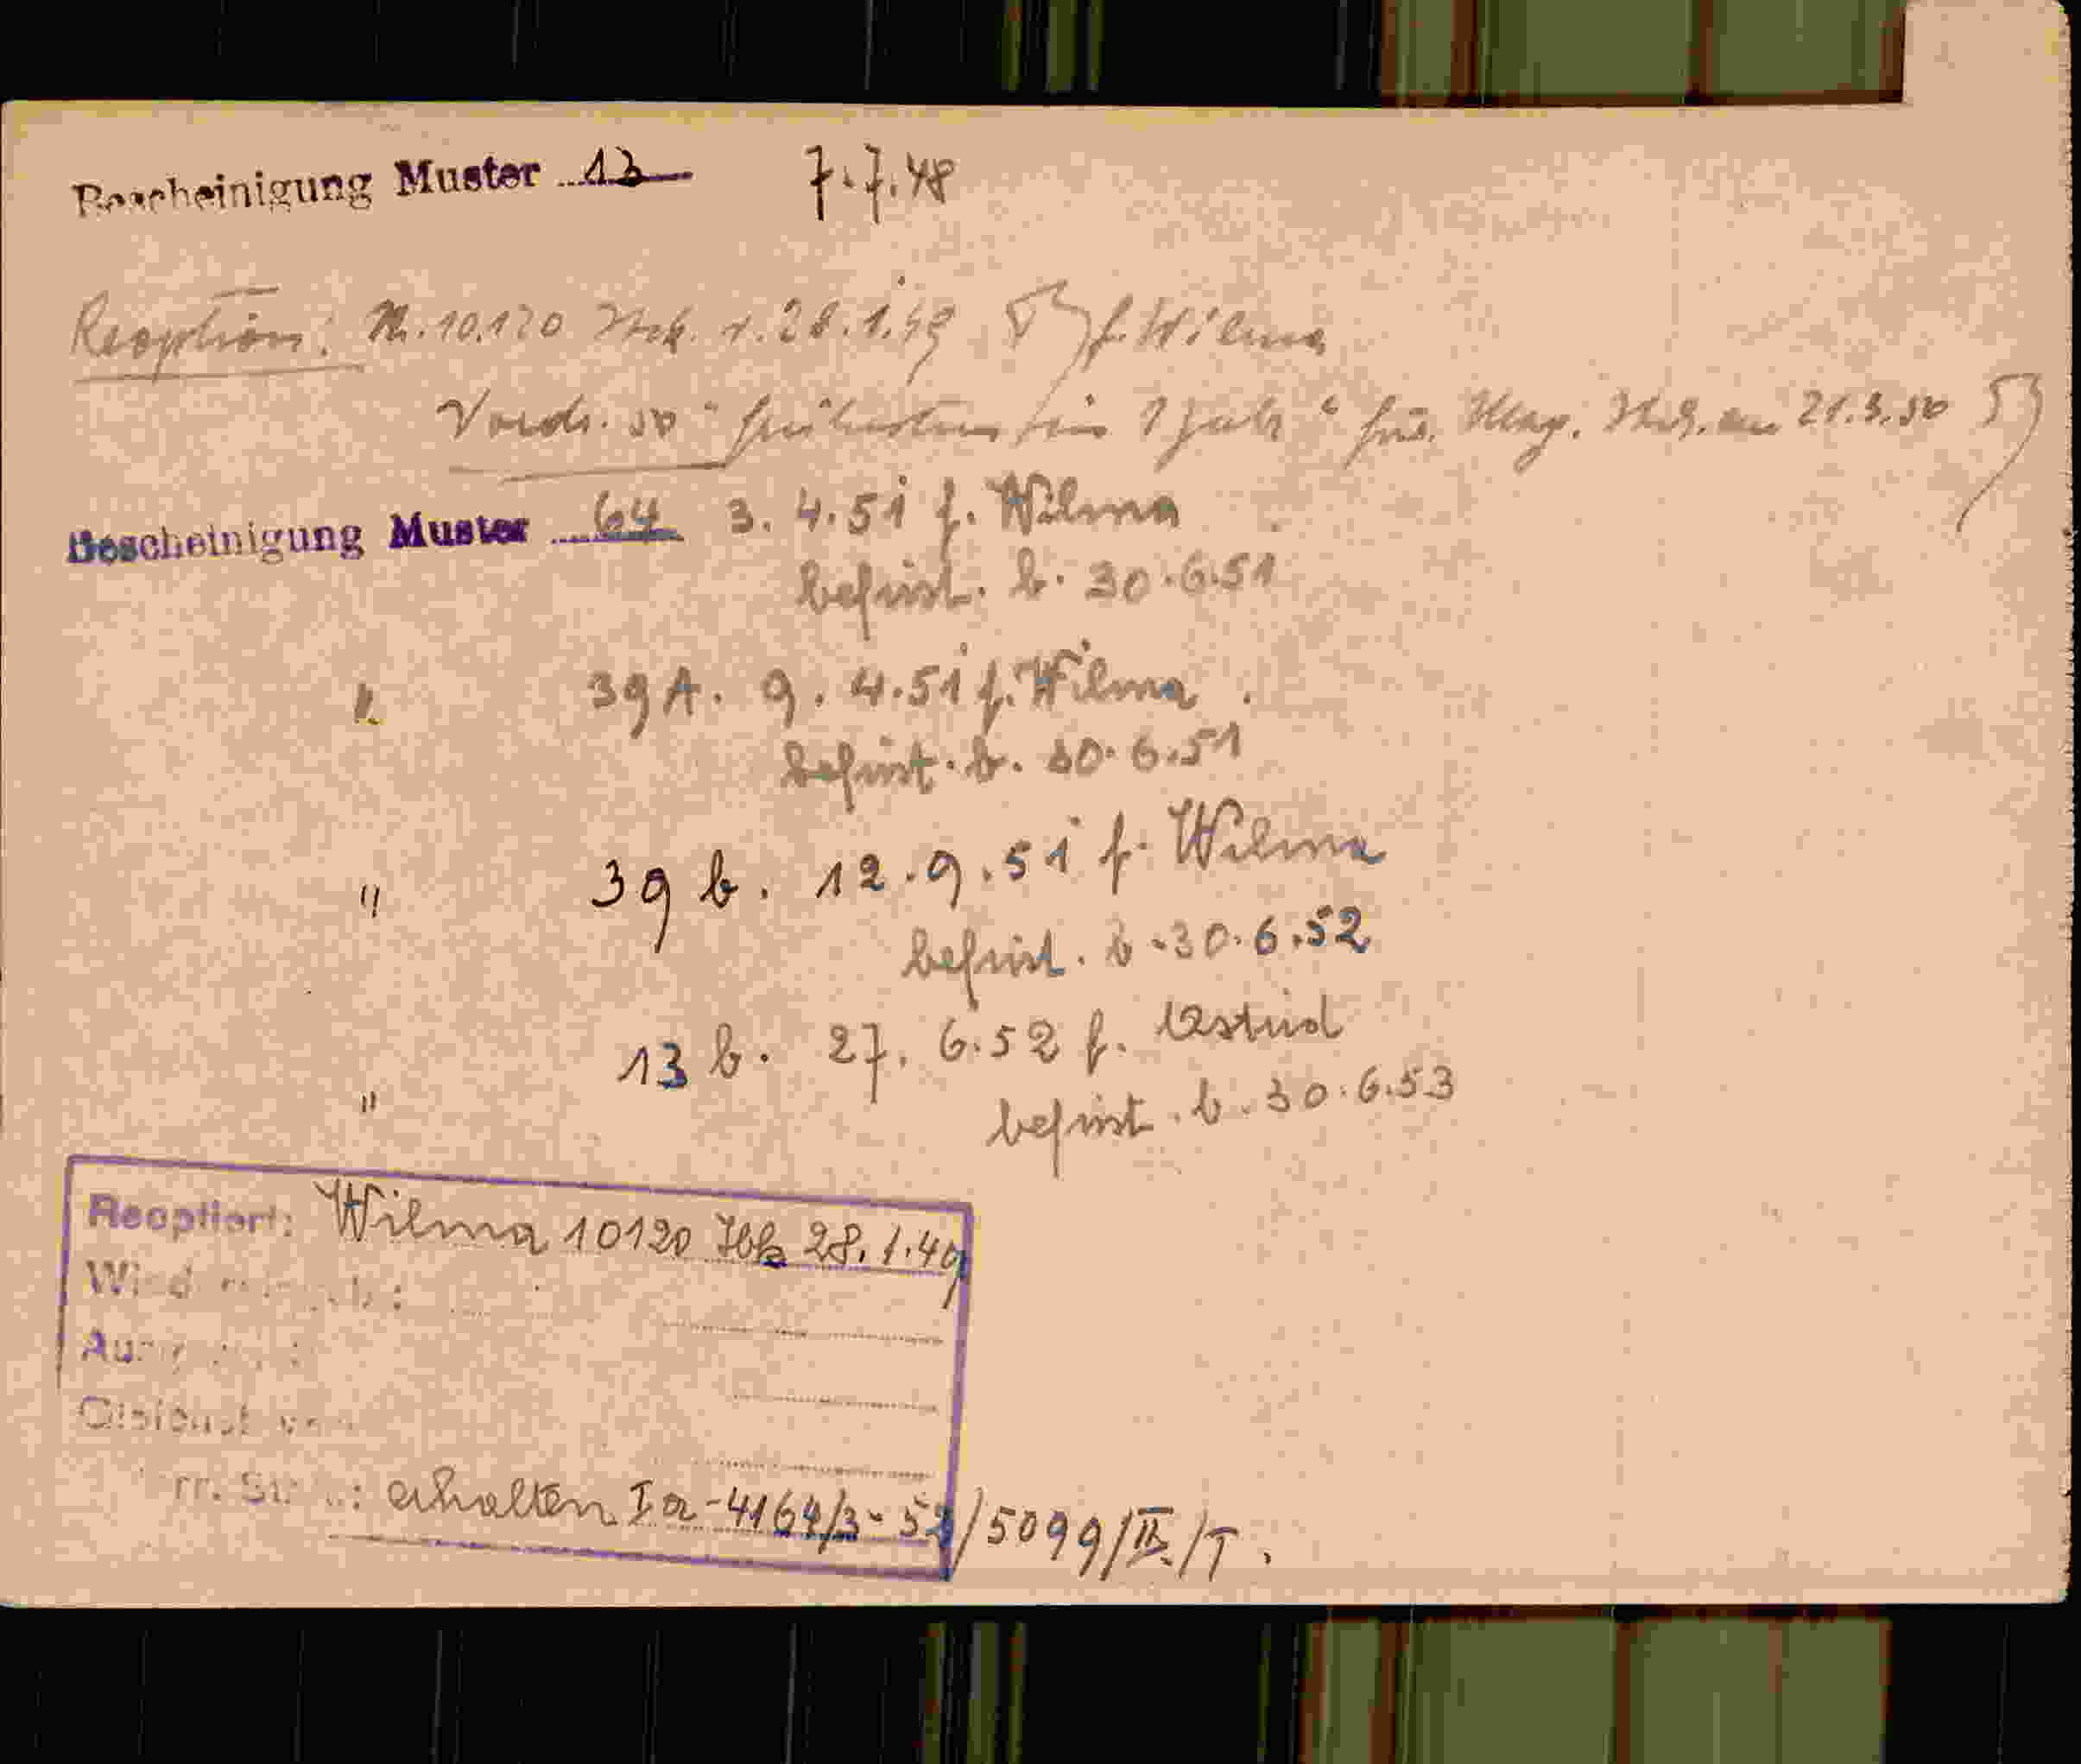 Bescheinigung Muster 13 7.7.48
Reoption: Nr. 10.120 Ibk. v. 28.1.49 f. Wilma
Vordr. 50 " 1 Jahr " für Ibk. am 21.3.50
Bescheinigung Muster 64 3. 4. 51 f. Wilma
befrist. b. 30.6.51
" 39 A. 9. 4. 51 f. Wilma
befrist. b. 30.6.51
" 39 b. 12.9.51 f. Wilma
befrist. b. 30.6.52
" 13 b. 27. 6.52 f. Astrid
befrist. b. 30.6.53
Reoptiert: Wilma 10120 Ibk 28.1.49
erhalten Ia-4164/3-52/5099/II./T.